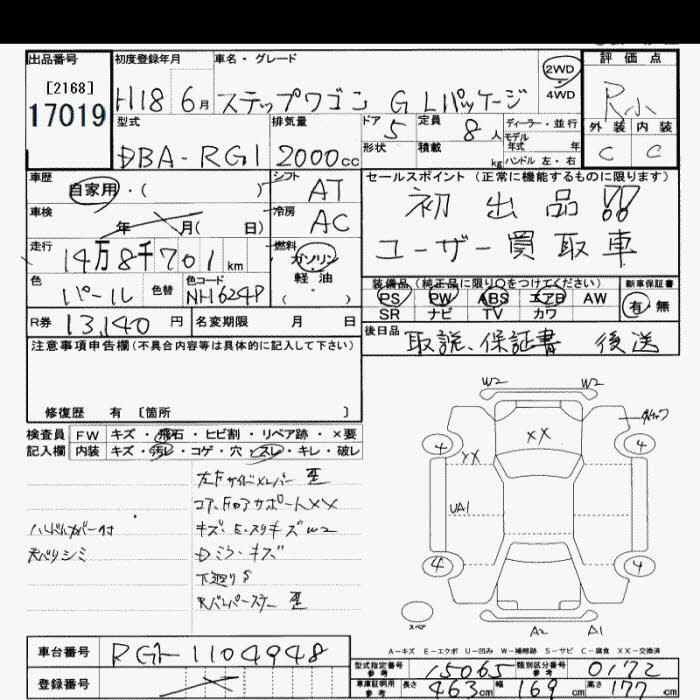 出品番号 初度登録年月 車名・グレード 2WD 4WD 評価点
[2168]
17019 H18 6月 ステップワゴン G Lパッケージ R小
型式 排気量 ドア 5 定員 8人 ディーラー・並行 外装 内装
モデル年式 年
DBA-RG1 2000cc 形状 積載 kg ハンドル 左・右 C C
車歴 シフト セールスポイント (正常に機能するものに限ります)
自家用・( ) AT 初出品!!
車検 冷房
年 月( 日) AC
走行 燃料
14万8千701km ガソリン ユーザー買取車
色 色替 色コード 軽油 装備品(純正品に限り○をつけてください) 新車保証書
パール NH624P ( ) PS PW ABS エアB AW 有 無
SR ナビ TV カワ
R券 13,140円 名変期限 月 日 後日品 取説、保証書 後送
注意事項申告欄(不具合内容等は具体的に記入して下さい)
修復歴 有 〔箇所 〕
検査員 FW キズ・飛石・ヒビ割・リペア跡・×要
記入欄 内装 キズ・汚レ・コゲ・穴・スレ・キレ・破レ
W2 W2
XX
4 4
YX
UA1
4 4
スペア
A2 A1
左Fサイドメンバー 歪
コアサポートXX
ハンドルカバー付 キズ・E・スリキズW2
天バリシミ Dミラーキズ
下廻りS
歪
A-キズ E-エクボ U-凹み W-補修跡 S-サビ C-腐食 XX-交換済
車台番号 RG1-1104948
型式指定番号 参考 15065 類別区分番号 参考 0172
登録番号
車庫証明用 参考 長さ 463cm 幅 169cm 高さ 177cm